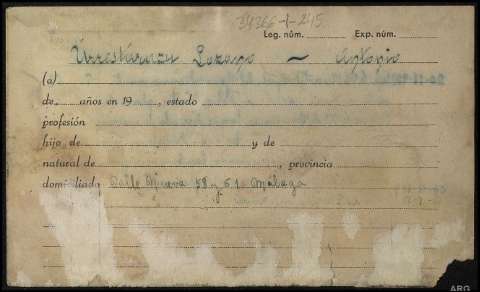 34366-1-245
Leg. núm. Exp. núm.
Urrestarazu Lozano ~ Antonio
(a)
de años en 19 , estado
profesión
hijo de y de
natural de , provincia
domiciliado Calle Nueva 58 y 61 Málaga
ARG